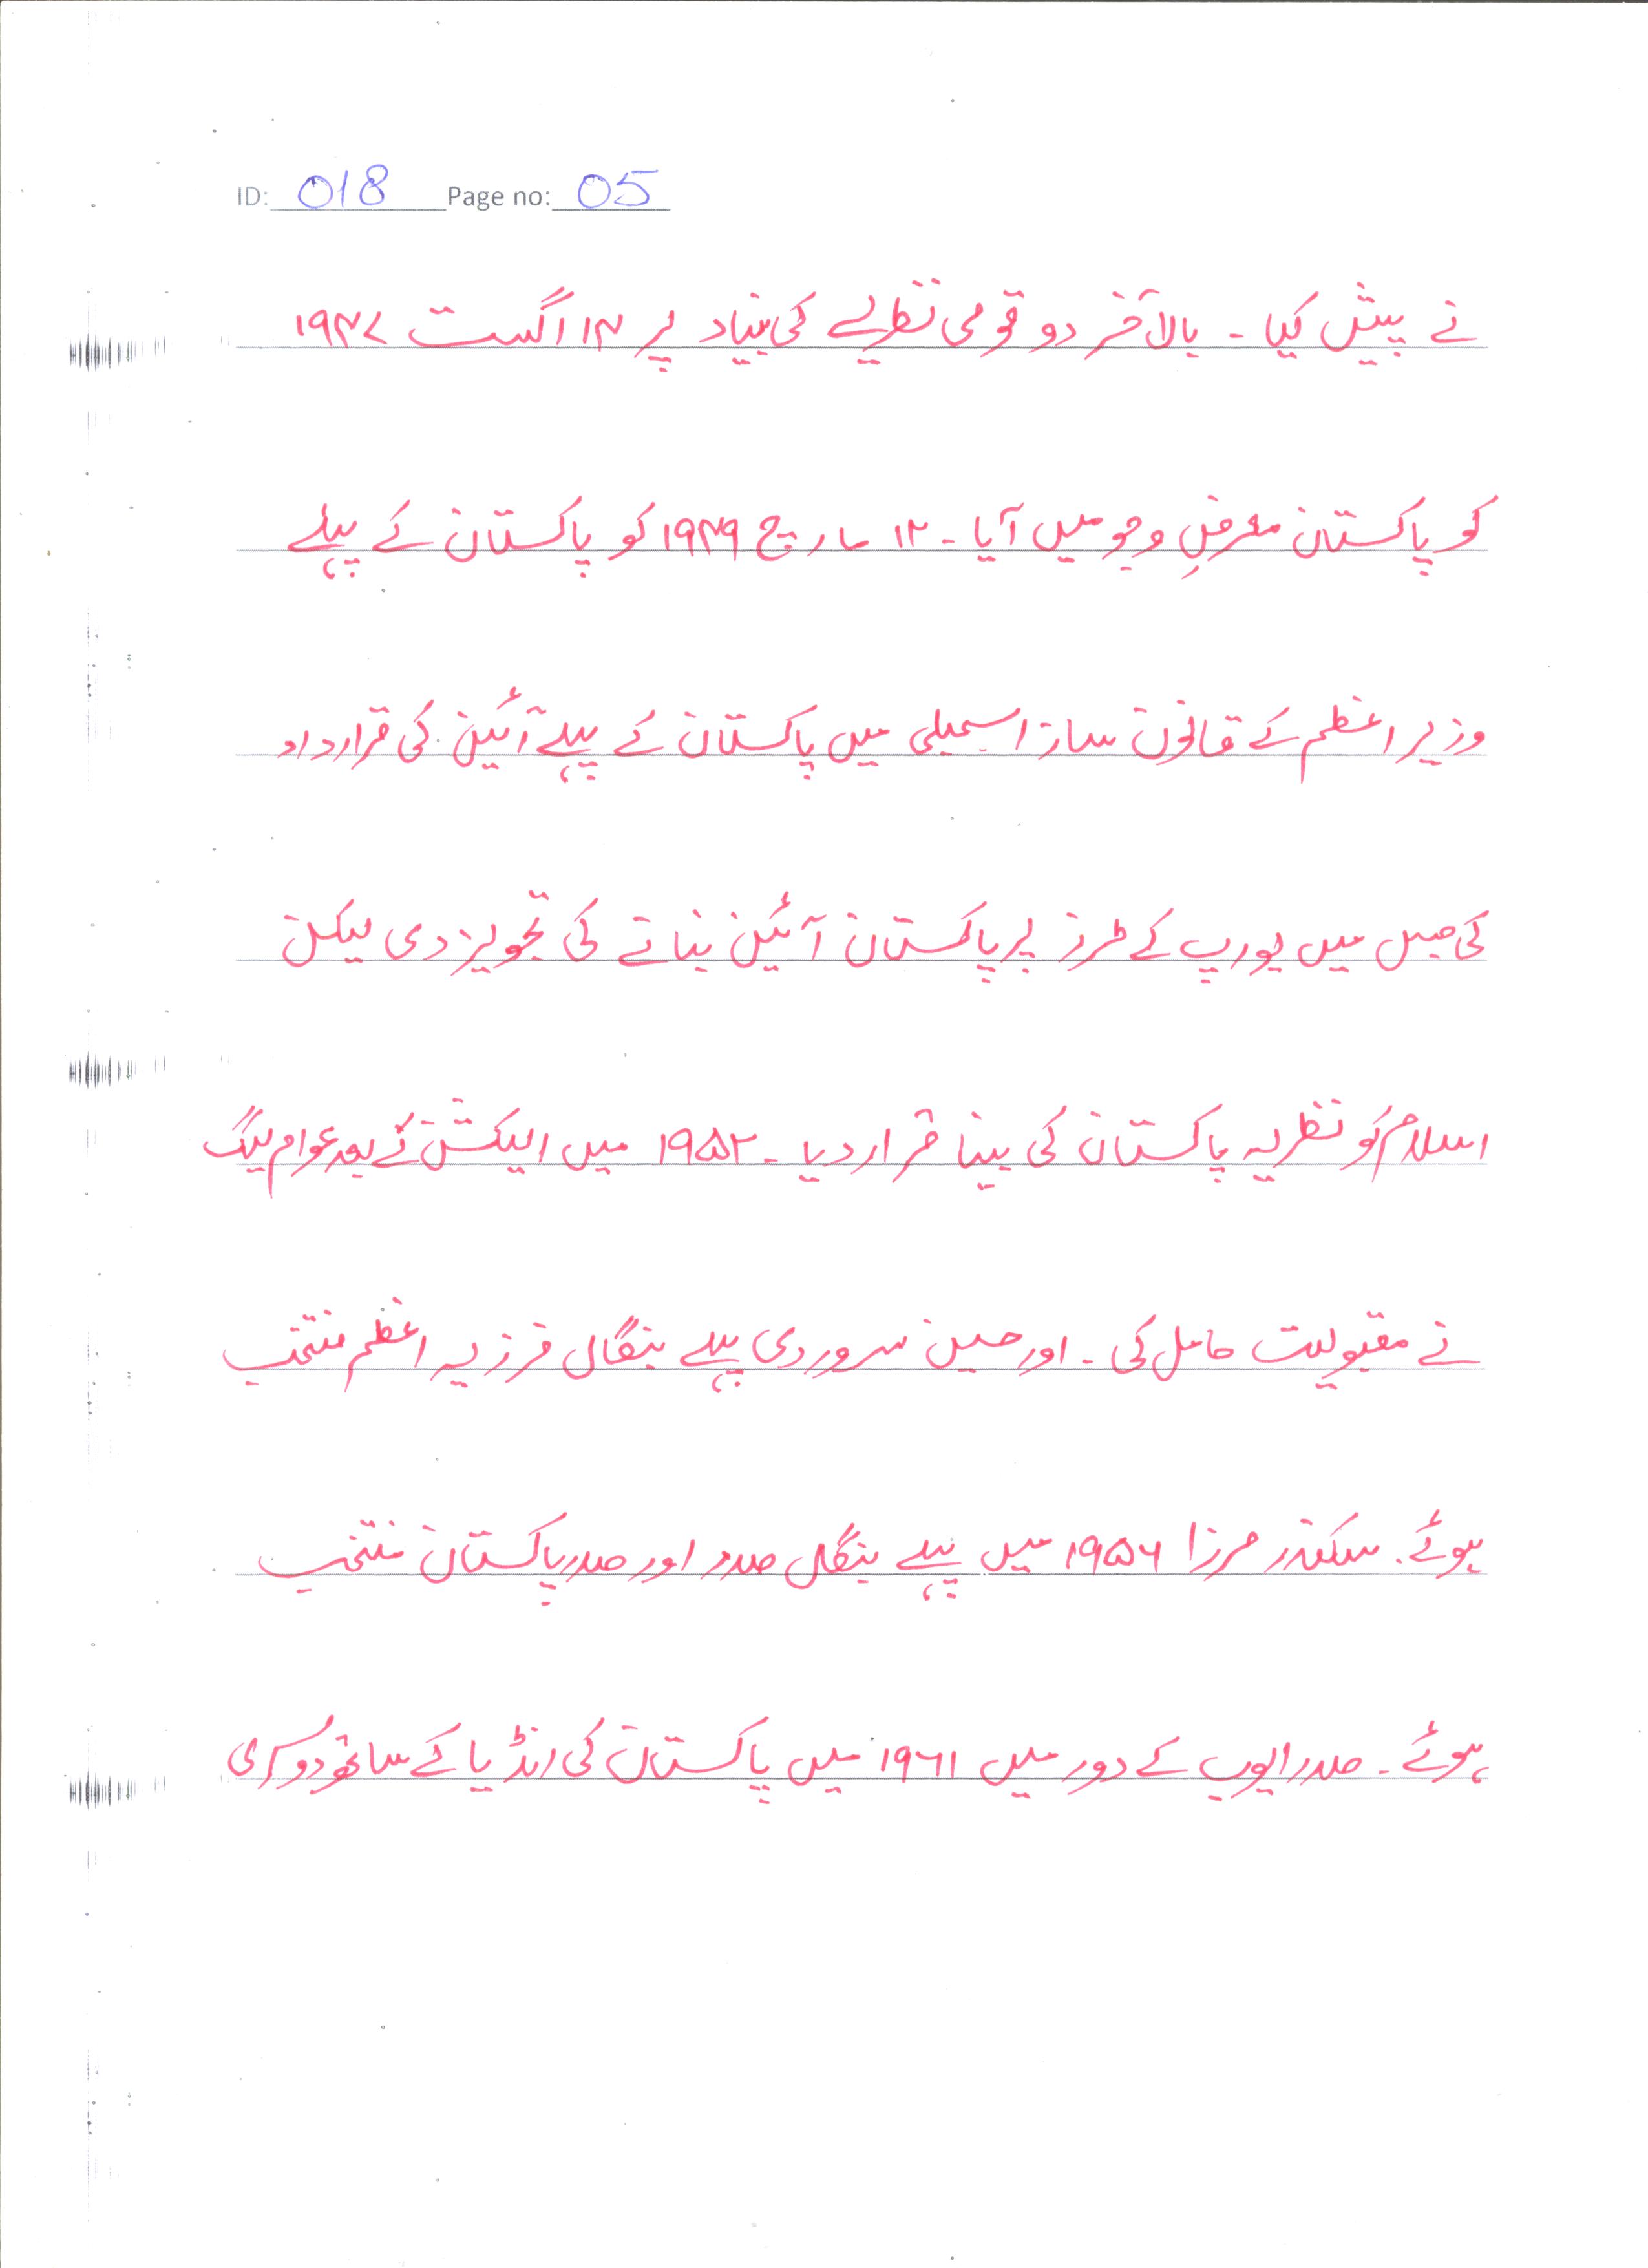 ID: 018 Page no: 05
نے پیش کیا۔ بالآخر دو قومی نظریے کی بنیاد پر ۱۴ اگست ۱۹۴۷
کو پاکستان معرضِ وجو میں آیا۔ ۱۲ مارچ ۱۹۴۹ کو پاکستان کے پہلے
وزیر اعظم کے قانون ساز اسمبلی میں پاکستان کے پہلے آئین کی قرارداد
کی جس میں یورپ کے طرز پر پاکستان آئین بنانے کی تجویز دی لیکن
اسلام کو نظریہ پاکستان کی بینا قرار دیا۔ ۱۹۵۲ میں الیکشن کے بعد عوام لیگ
نے مقبولیت حاصل کی۔ اور حسین سروردی پہلے بنگال اعظم منتخب
ہوئے۔ سکندر مرزا ۱۹۵۶ میں پہلے بنگال صدر اور صدر پاکستان منتخب
ہوئے۔ صدر ایوب کے دور میں ۱۹۶۱ میں پاکستان کی انڈیا کے ساتھ دوسری